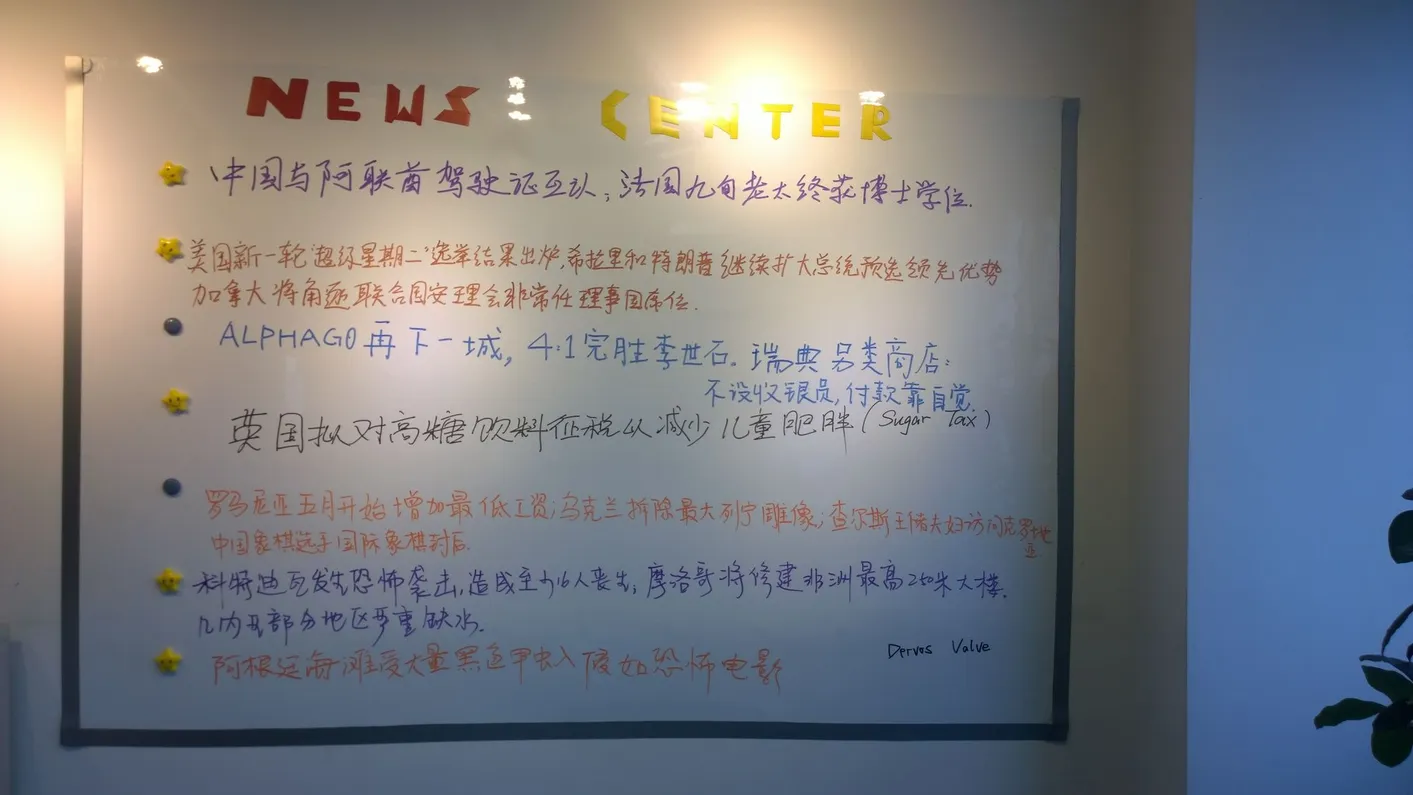 NEWS CENTER
中国与阿联酋驾驶证互认;法国九旬老太终获博士学位.
美国新一轮"超级星期二"选举结果出炉,希拉里和特朗普继续扩大总统预选领先优势
加拿大将角逐联合国安理会非常任理事国席位.
ALPHAGO再下一城,4:1完胜李世石。瑞典另类商店:
不设收银员,付款靠自觉.
英国拟对高糖饮料征税以减少儿童肥胖(Sugar Tax)
罗马尼亚五月开始增加最低工资;乌克兰拆除最大列宁雕像;查尔斯王储夫妇访问克罗地亚
中国象棋选手国际象棋封后.
科特迪瓦发生恐怖袭击,造成至少16人丧生;摩洛哥将修建非洲最高250米大楼.
几内亚部分地区严重缺水.
阿根廷海滩受大量黑色甲虫入侵如恐怖电影
Dervos Valve